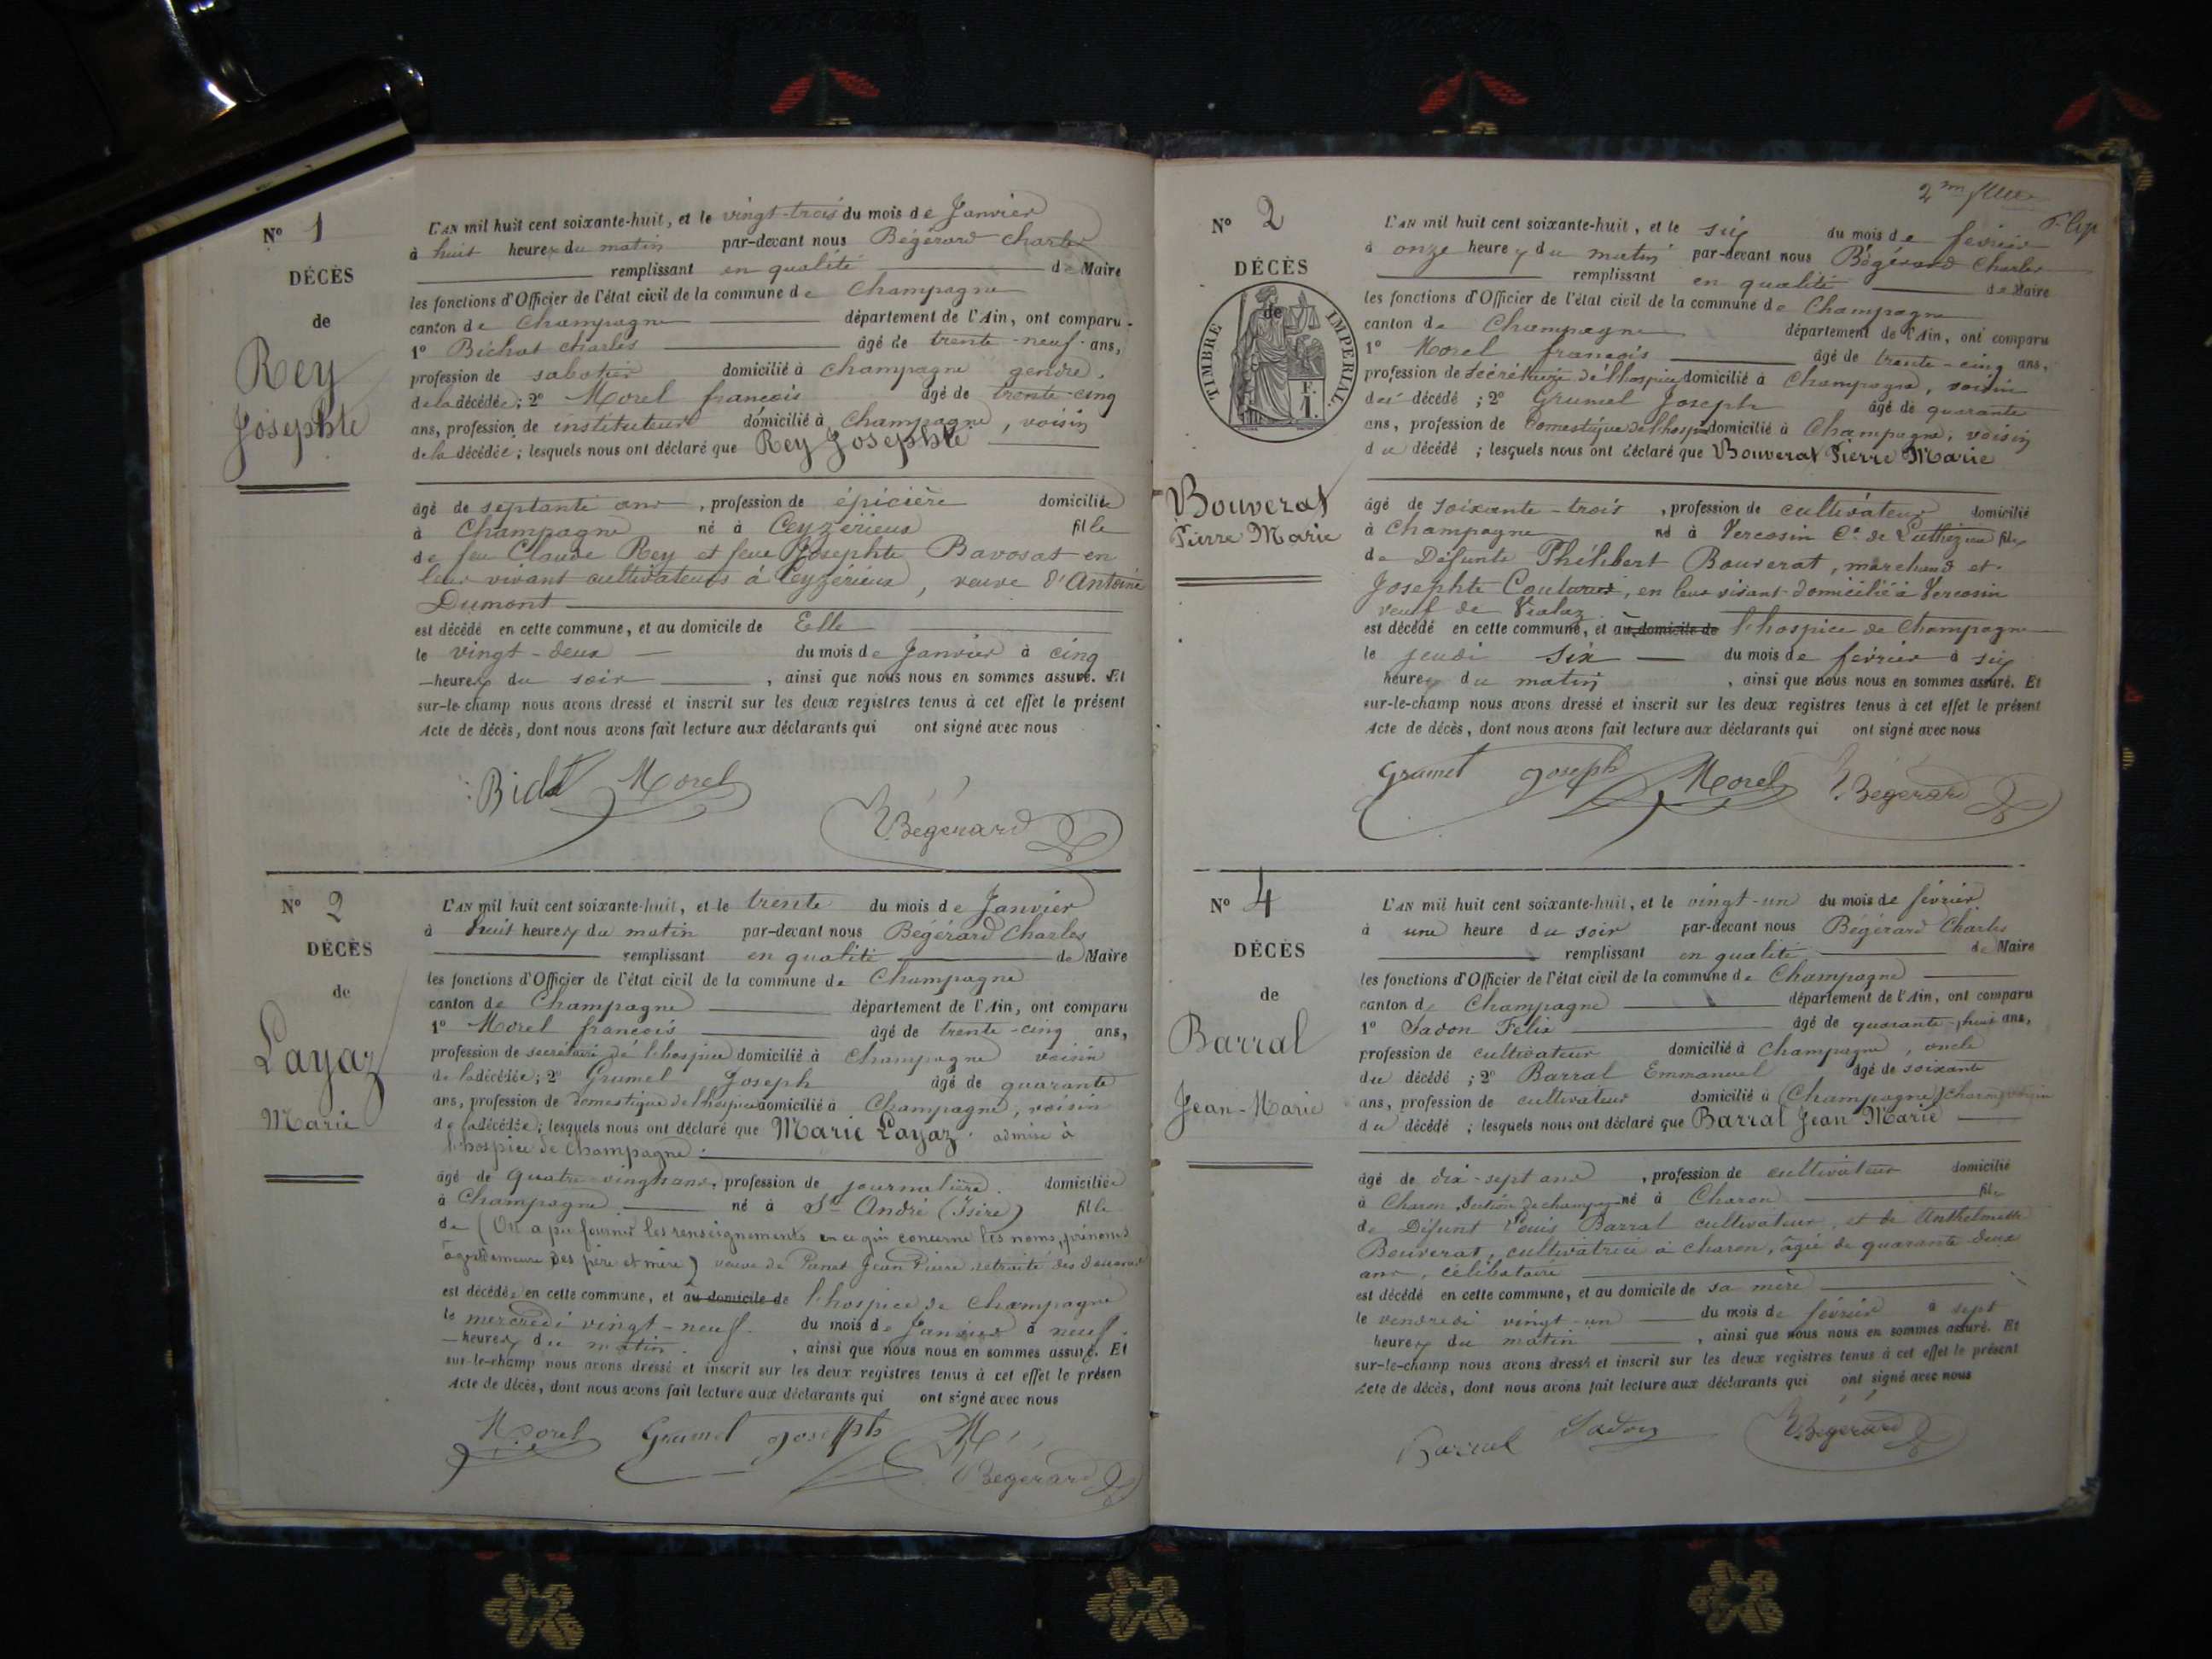 N° 1
DÉCÈS
de
Rey
Josephte
L'AN mil huit cent soixante-huit, et le vingt-trois du mois de Janvier
à huit heures du matin par-devant nous Bégérard Charles
remplissant en qualité de Maire
les fonctions d'Officier de l'état civil de la commune de Champagne
canton de Champagne département de l'Ain, ont comparu
1° Bichat Charles âgé de trente-neuf ans,
profession de sabotier domicilié à Champagne gendre
de la décédée; 2° Morel françois âgé de trente-cinq
ans, profession de instituteur domicilié à Champagne, voisin
de la décédée; lesquels nous ont déclaré que Rey Josephte
âgé de septante ans, profession de épicière domiciliée
à Champagne né à Ceyzérieux fille
de feu Claude Rey et feue Josephte Bavosat en
leur vivant cultivateurs à Ceyzérieux, veuve d'Antoine
Dumont
est décédé en cette commune, et au domicile de Elle
le vingt-deux du mois de Janvier à cinq
heures du soir, ainsi que nous nous en sommes assuré. Et
sur-le-champ nous avons dressé et inscrit sur les deux registres tenus à cet effet le présent
Acte de décès, dont nous avons fait lecture aux déclarants qui ont signé avec nous
Morel
Bégérard
N° 2
DÉCÈS
de
Layaz
Marie
L'AN mil huit cent soixante-huit, et le trente du mois de Janvier
à huit heures du matin par-devant nous Bégérard Charles
remplissant en qualité de Maire
les fonctions d'Officier de l'état civil de la commune de Champagne
canton de Champagne département de l'Ain, ont comparu
1° Morel françois âgé de trente-cinq ans,
profession de secrétaire de l'hospice domicilié à Champagne voisin
de la décédée; 2° Grumel Joseph âgé de quarante
ans, profession de domestique de l'hospice domicilié à Champagne, voisin
de la décédée; lesquels nous ont déclaré que Marie Layaz admise à
l'hospice de Champagne
âgé de quatre vingts ans, profession de journalière domiciliée
à Champagne né à St André (Isère) fille
de (On a pu fournir les renseignements en ce qui concerne les noms, prénoms
âge et demeure des père et mère) veuve de Panet Jean Pierre retraité des douanes
est décédée en cette commune, et au domicile de l'hospice de Champagne
le mercredi vingt-neuf du mois de Janvier à neuf
heures du matin, ainsi que nous nous en sommes assuré. Et
sur-le-champ nous avons dressé et inscrit sur les deux registres tenus à cet effet le présen
Acte de décès, dont nous avons fait lecture aux déclarants qui ont signé avec nous
Morel Grumel Joseph
Bégérard
2me
N° 2
DÉCÈS
de
TIMBRE IMPÉRIAL.
F.
1.
Bouverat
Pierre Marie
L'AN mil huit cent soixante-huit, et le six du mois de février
à onze heures du matin par-devant nous Bégérard Charles
remplissant en qualité de Maire
les fonctions d'Officier de l'état civil de la commune de Champagne
canton de Champagne département de l'Ain, ont comparu
1° Morel françois âgé de trente-cinq ans,
profession de Sécrétaire de l'hospice domicilié à Champagne, voisin
du décédé; 2° Grumel Joseph âgé de quarante
ans, profession de Domestique de l'hospice domicilié à Champagne, voisin
du décédé; lesquels nous ont déclaré que Bouverat Pierre Marie
âgé de soixante-trois, profession de cultivateur domicilié
à Champagne né à Vercosin Cne de fils
de Défunts Philibert Bouverat, marchand et
Josephte, en leur vivant domicilié à Vercosin
veuf de Vialaz
est décédé en cette commune, et au domicile de l'hospice de Champagne
le jeudi six du mois de février à six
heures du matin, ainsi que nous nous en sommes assuré. Et
sur-le-champ nous avons dressé et inscrit sur les deux registres tenus à cet effet le présent
Acte de décès, dont nous avons fait lecture aux déclarants qui ont signé avec nous
Grumel Joseph Morel Bégérard
N° 4
DÉCÈS
de
Barral
Jean-Marie
L'AN mil huit cent soixante-huit, et le vingt-un du mois de février
à une heure du soir par-devant nous Bégérard Charles
remplissant en qualité de Maire
les fonctions d'Officier de l'état civil de la commune de Champagne
canton de Champagne département de l'Ain, ont comparu
1° Sadon Félix âgé de quarante-huit ans,
profession de cultivateur domicilié à Champagne, oncle
du décédé; 2° Barral Emmanuel âgé de soixante
ans, profession de cultivateur domicilié à (Champagne) Charon, voisin
du décédé; lesquels nous ont déclaré que Barral Jean Marie
âgé de dix-sept ans, profession de cultivateur domicilié
à Charon, Section de champagne né à Charon fils
de Défunt Louis Barral cultivateur, et de Anthelmette
Bouverat, cultivatrice à charon, âgée de quarante deux
ans, célibataire
est décédé en cette commune, et au domicile de sa mère
le vendredi vingt-un du mois de février à sept
heures du matin, ainsi que nous nous en sommes assuré. Et
sur-le-champ nous avons dressé et inscrit sur les deux registres tenus à cet effet le présent
Acte de décès, dont nous avons fait lecture aux déclarants qui ont signé avec nous
Barral Sadon Bégérard